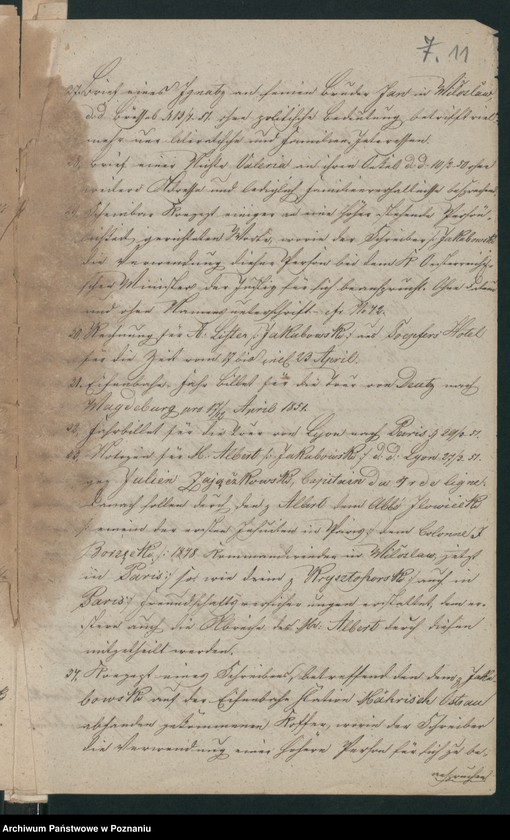 7. 11
27. Brief eines Ignatz an seinen Bruder Jan in Miloslaw
d.d. 51. ohne politische Bedeutung betrifft viel-
mehr nur literarische und Familien Interessen.
Brief einer Nichte Valeria an ihren Onkel d.d. 10/2. 50 ohne
weitere Adresse und lediglich Familienverhältnisse
Konzept einiger an eine hoher stehende Persön-
lichkeit gerichteten Worte, worin der Schreiber /: Jakubowski
die Verwendung dieser Person bei dem K. Oesterreichi-
schen Minister der Justiz für sich beansprucht. Ohne Datum
und ohne Namensunterschrift. cfr. Nr 42.
30. Rechnung für A. Lister, /:Jakubowski:/ aus Toepfers Hotel
für die Zeit vom 17 bis 23 April.
31. Eisenbahn-Fahrbillet für die Tour von Deutz nach
Magdeburg pro April 1851.
32. Fahrbillet für die Tour von Lyon nach Paris 29/3. 51.
33. Notizen für A. Albert /: Jakubowski :/ d.d. Lyon 27/3. 51.
gez Julien Zajączkowski, Capitaine du 4 de ligne.
Danach sollen durch den p Albert dem Abbé Ilowiecki
einem der ersten in Prag, dem Colonne J
Boszęcki /: 1848 Kommandirender in Miloslaw, jetzt
in Paris :/ so wie dem p Krysztoporski /: auch in
Paris :/ Freundschaftsversicherungen erstattet, dem er-
steren auch die Adresse des Mr. Albert durch diesen
mitgetheilt werden.
34. Konzept eines Schreibens, betreffend den dem p Jaku-
bowski auf der Eisenbahn Station Mährisch Ostrau
abhanden gekommenen Koffer, worin der Schreiber
die Verwendung einer höhern Person für sich zu be-
anspruchen
Archiwum Państwowe w Poznaniu